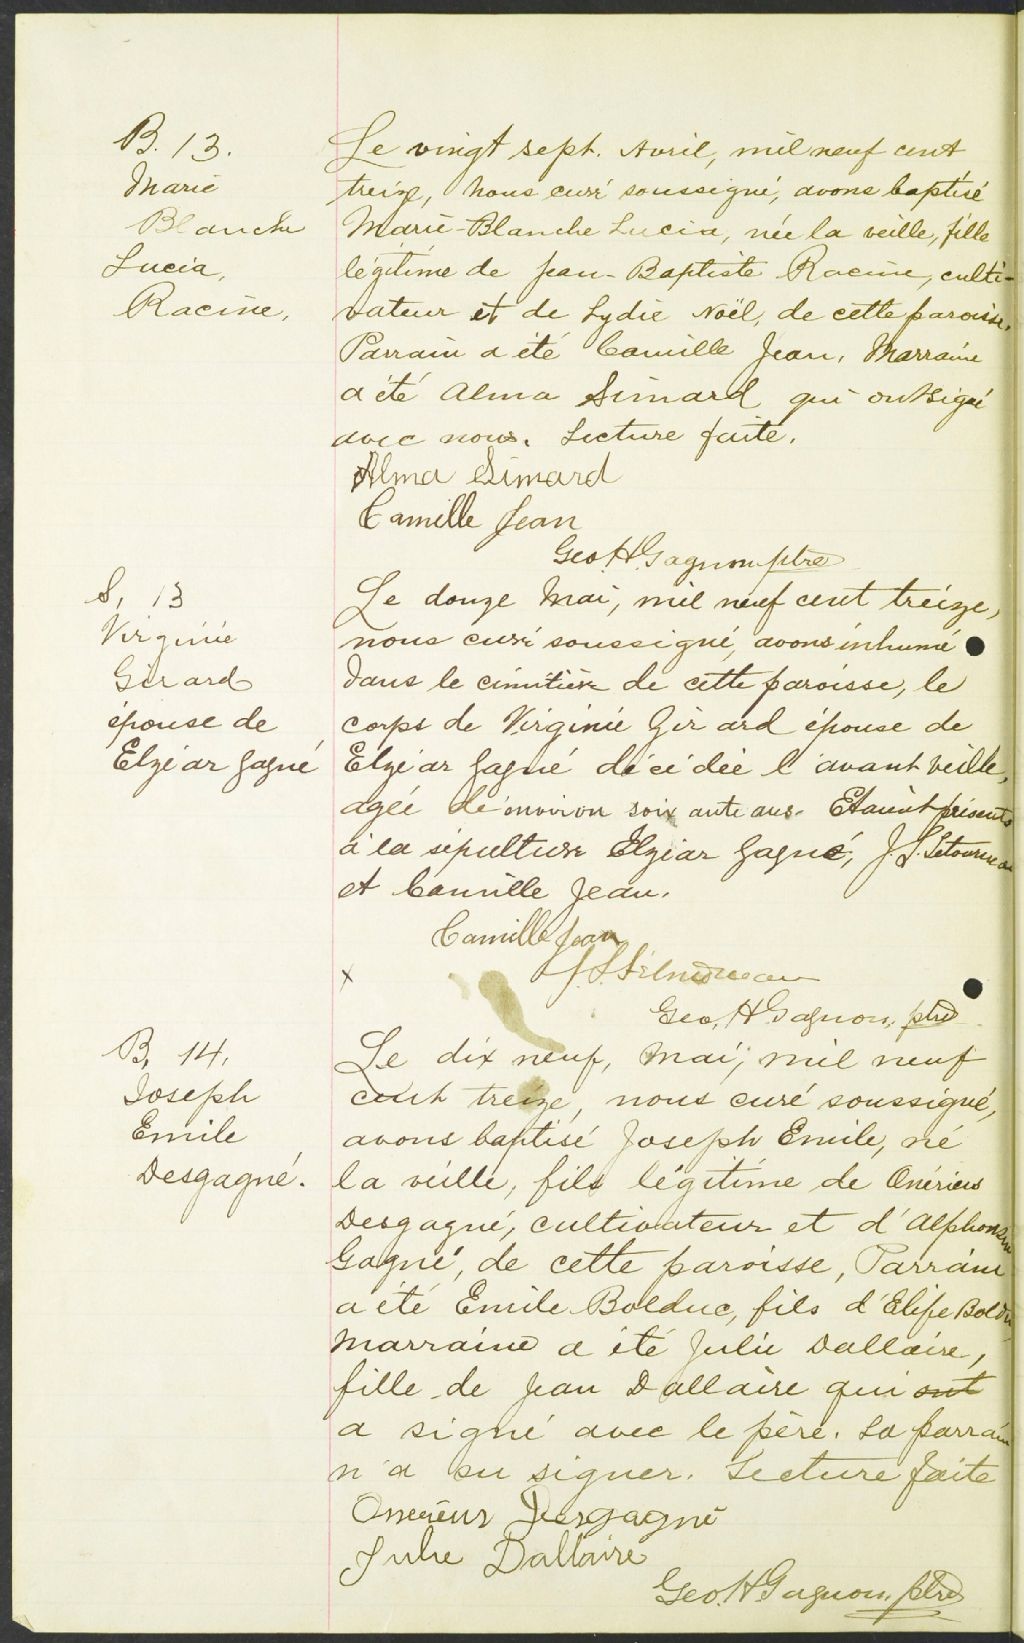 B. 13.
Marie
Blanche
Lucia,
Racine.
Le vingt sept. Avril, mil neuf cent
treize, Nous curé soussigné, avons baptisé
Marie-Blanche Lucia, née la veille, fille
légitime de Jean-Baptiste Racine, culti-
vateur et de Lydie Noël, de cette paroisse.
Parrain a été Camille Jean, Marraine
a été Alma Simard qui ont signé
avec nous. Lecture faite.
Alma Simard
Camille Jean
Geo. H. Gagnon ptre
S, 13
Virginie
Girard
épouse de
Elzéar Gagné
Le douze Mai, mil neuf cent treize,
nous curé soussigné, avons inhumé
dans le cimitière de cette paroisse, le
corps de Virginie Girard épouse de
Elzéar Gagné décédée l'avant veille,
agée de environ soixante ans. Etaient présents
à la sépulture Elzéar Gagné, J. S. Letourneau
et Camille Jean.
Camille Jean
x
Geo. H Gagnon, ptre
B, 14.
Joseph
Emile
Desgagné.
Le dix neuf, Mai, mil neuf
cent treize, nous curé soussigné,
avons baptisé Joseph Emile, né
la veille, fils légitime de Onérius
Desgagné, cultivateur et d'Alphonsine
Gagné, de cette paroisse, Parrain
a été Emile Bolduc, fils d'Elife Bolduc,
Marraine a été Julie Dallaire,
fille de Jean Dallaire qui ont
a signé avec le père. Le parrain
n'a su signer. Lecture faite
Onérius Desgagné
Julie Dallaire
Geo. H Gagnon, ptre